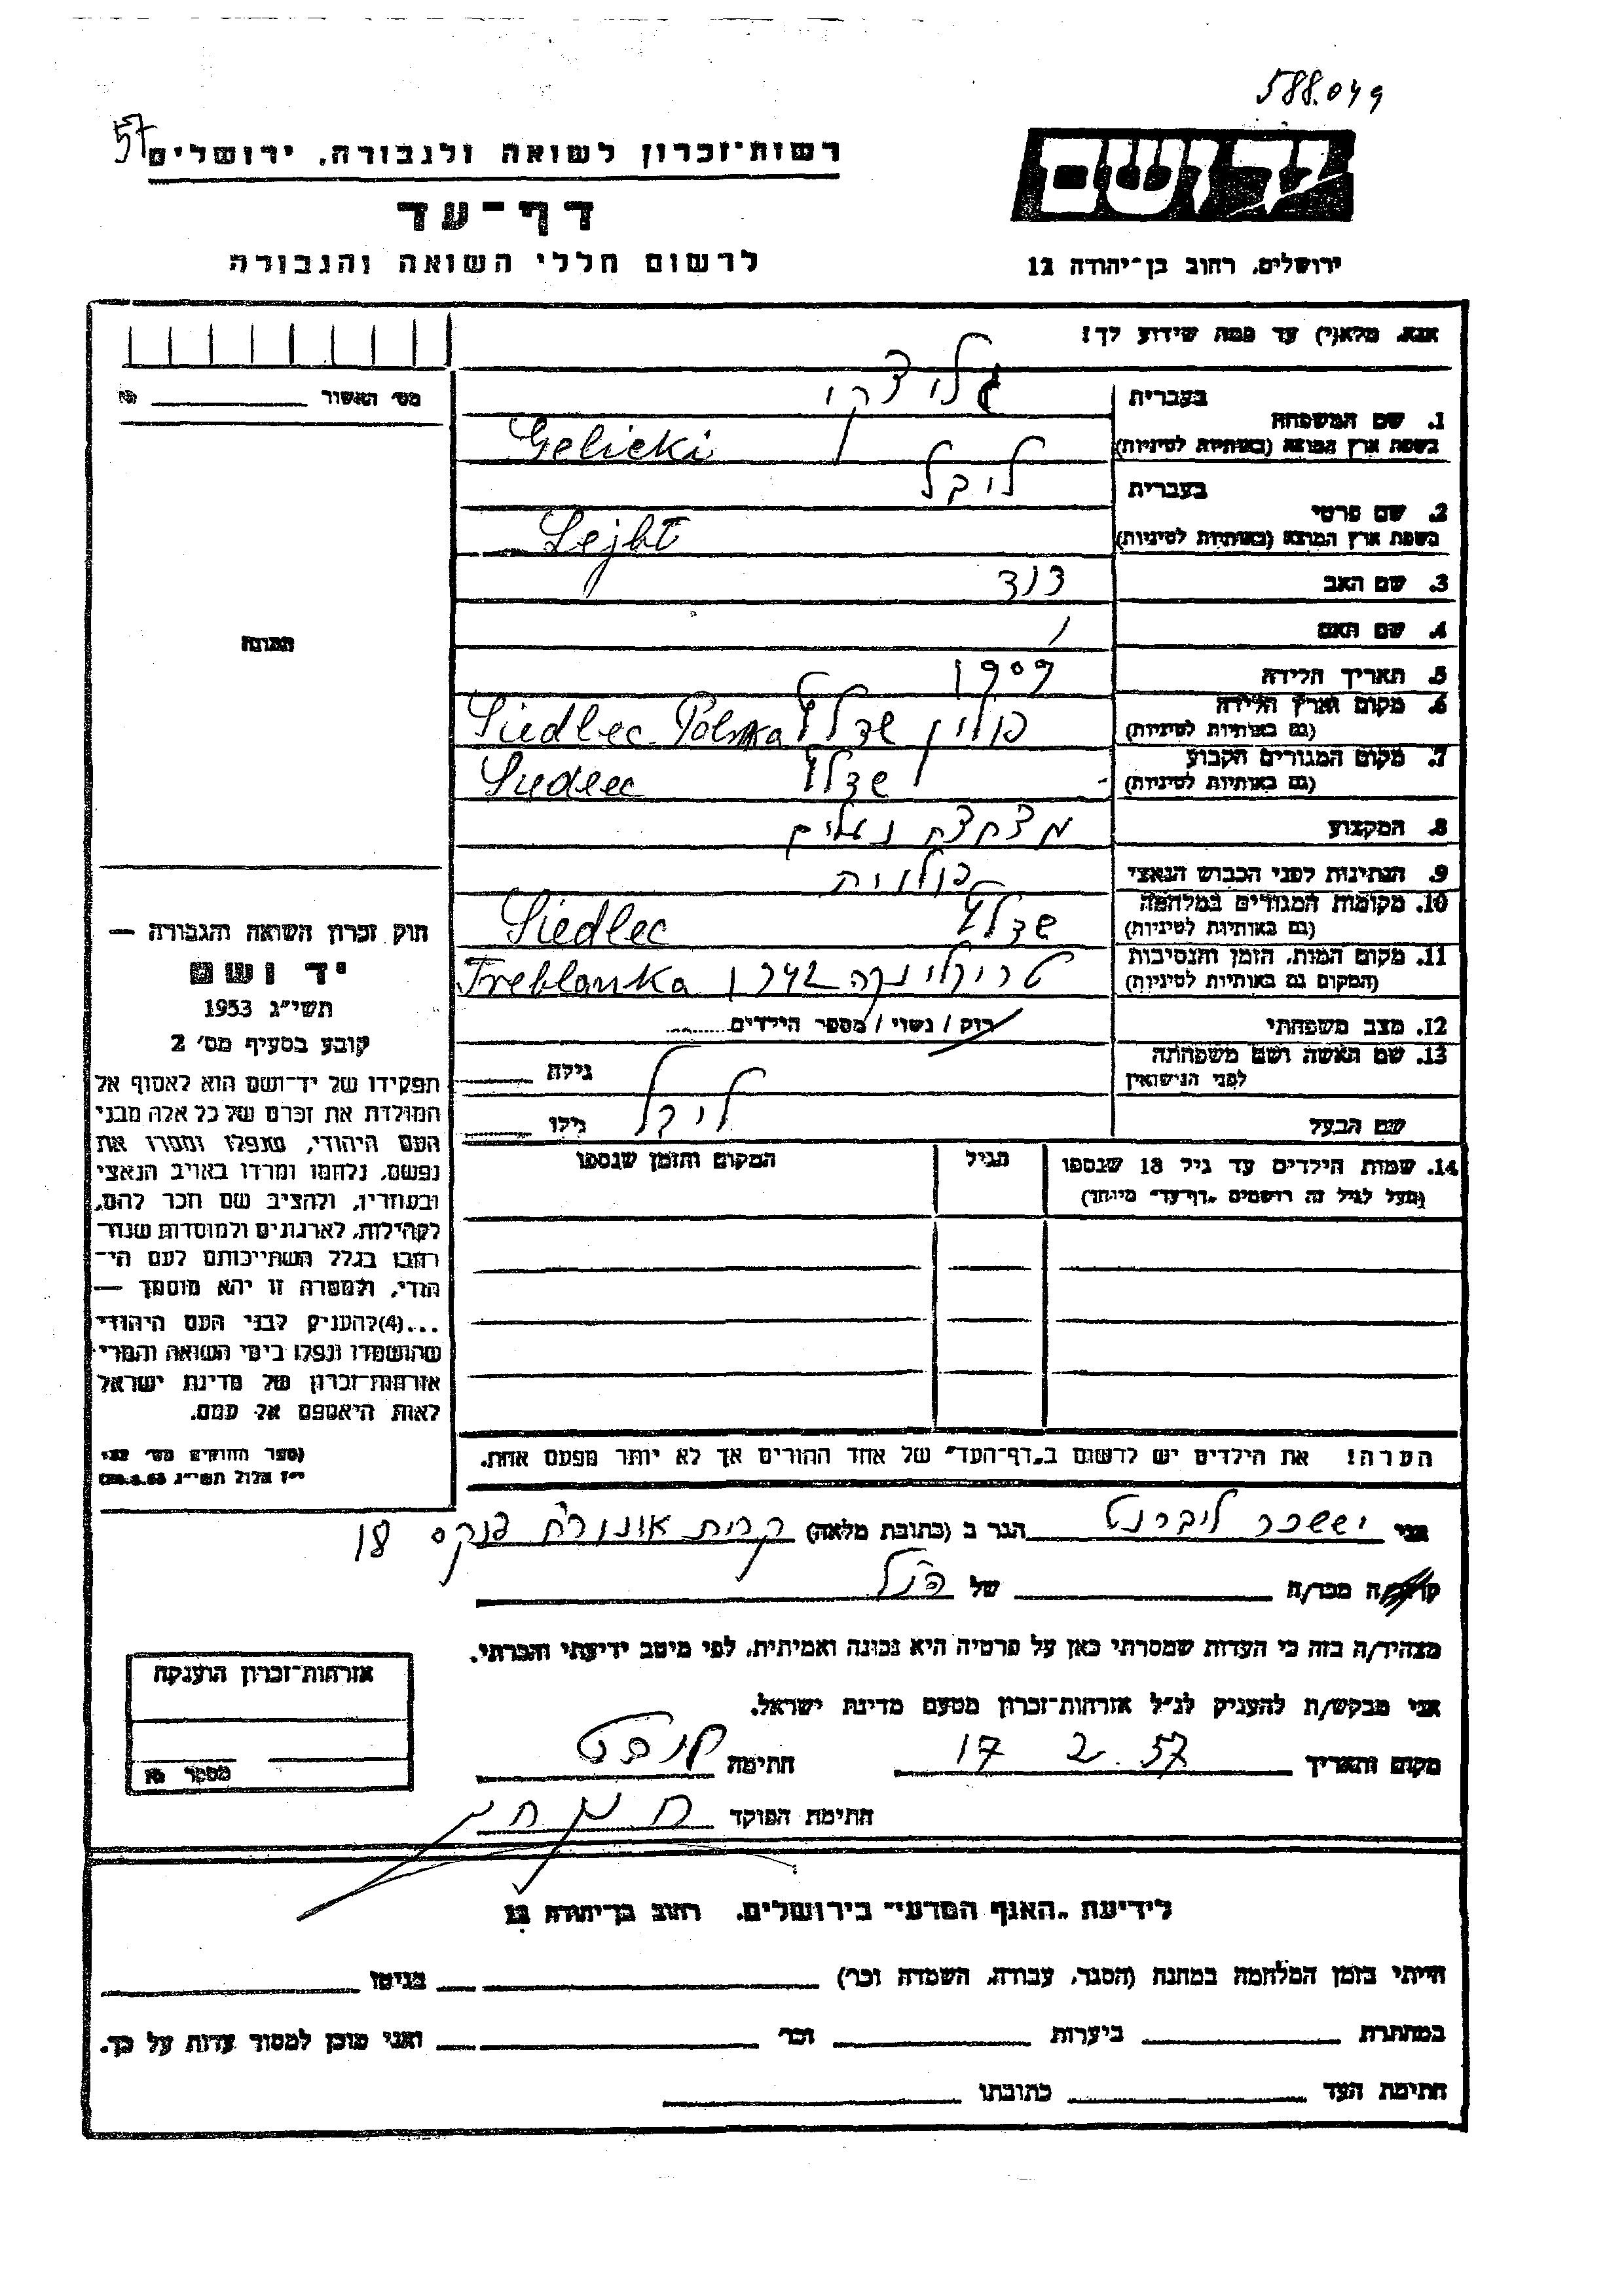 588.049
57
רשות־זכרון לשואה ולגבורה, ירושלים
יד ושם
דף־עד
לרשום חללי השואה והגבורה
ירושלים, רחוב בן־יהודה 12
אנא, מלא(י) עד כמה שידוע לך!
מס׳ האשור No
1. שם המשפחה
בעברית גליצקי
בשפת ארץ המוצא (באותיות לטיניות) Gelicki
2. שם פרטי
בעברית ליבל
בשפת ארץ המוצא (באותיות לטיניות)
3. שם האב דוד
4. שם האם /
5. תאריך הלידה 1909
6. מקום וארץ הלידה
(גם באותיות לטיניות) פולין שדלץ Siedlec Polska
7. מקום המגורים הקבוע
(גם באותיות לטיניות) שדלץ
8. המקצוע
9. הנתינות לפני הכבוש הנאצי פולנית
10. מקומות המגורים במלחמה
(גם באותיות לטיניות) שדלץ Siedlec
11. מקום המות, הזמן והנסיבות
(המקום גם באותיות לטיניות) טריבלינקה Treblanka
12. מצב משפחתי רוק / נשוי / מספר הילדים
13. שם האשה ושם משפחתה
לפני הנישואין גילה
שם הבעל ליבל גילו
14. שמות הילדים עד גיל 18 שנספו
(מעל לגיל זה רושמים „דף־עד” מיוחד)
הגיל
המקום והזמן שנספו
הערה! את הילדים יש לרשום ב„דף־העד” של אחד ההורים אך לא יותר מפעם אחת.
התמונה
חוק זכרון השואה והגבורה —
יד ושם
תשי״ג 1953
קובע בסעיף מס׳ 2
תפקידו של יד־ושם הוא לאסוף אל
המולדת את זכרם של כל אלה מבני
העם היהודי, שנפלו ומסרו את
נפשם, נלחמו ומרדו באויב הנאצי
ובעוזריו, ולהציב שם וזכר להם,
לקהילות, לארגונים ולמוסדות שנח־
רבו בגלל השתייכותם לעם הי־
הודי, ולמטרה זו יהא מוסמך —
...(4) להעניק לבני העם היהודי
שהושמדו ונפלו בימי השואה והמרי
אזרחות־זכרון של מדינת ישראל
לאות היאספם אל עמם.
(ספר החוקים מס׳ 132
י״ז אלול תשי״ג 28.8.53)
אני יששכר ליברנט הגר ב (כתובת מלאה) קרית אונו רח׳ פנקס 18
קרוב/ה מכר/ה של הנ״ל
מצהיר/ה בזה כי העדות שמסרתי כאן על פרטיה היא נכונה ואמיתית, לפי מיטב ידיעתי והכרתי.
אני מבקש/ת להעניק לנ״ל אזרחות־זכרון מטעם מדינת ישראל.
מקום ותאריך 17 2. 57 חתימה
חתימת הפוקד
אזרחות־זכרון הוענקה
מספר No
לידיעת „האגף המדעי” בירושלים, רחוב בן־יהודה 12
הייתי בזמן המלחמה במחנה (הסגר, עבודה, השמדה וכר׳) בגיטו
במחתרת ביערות וכר׳ ואני מוכן למסור עדות על כך.
חתימת העד כתובתו